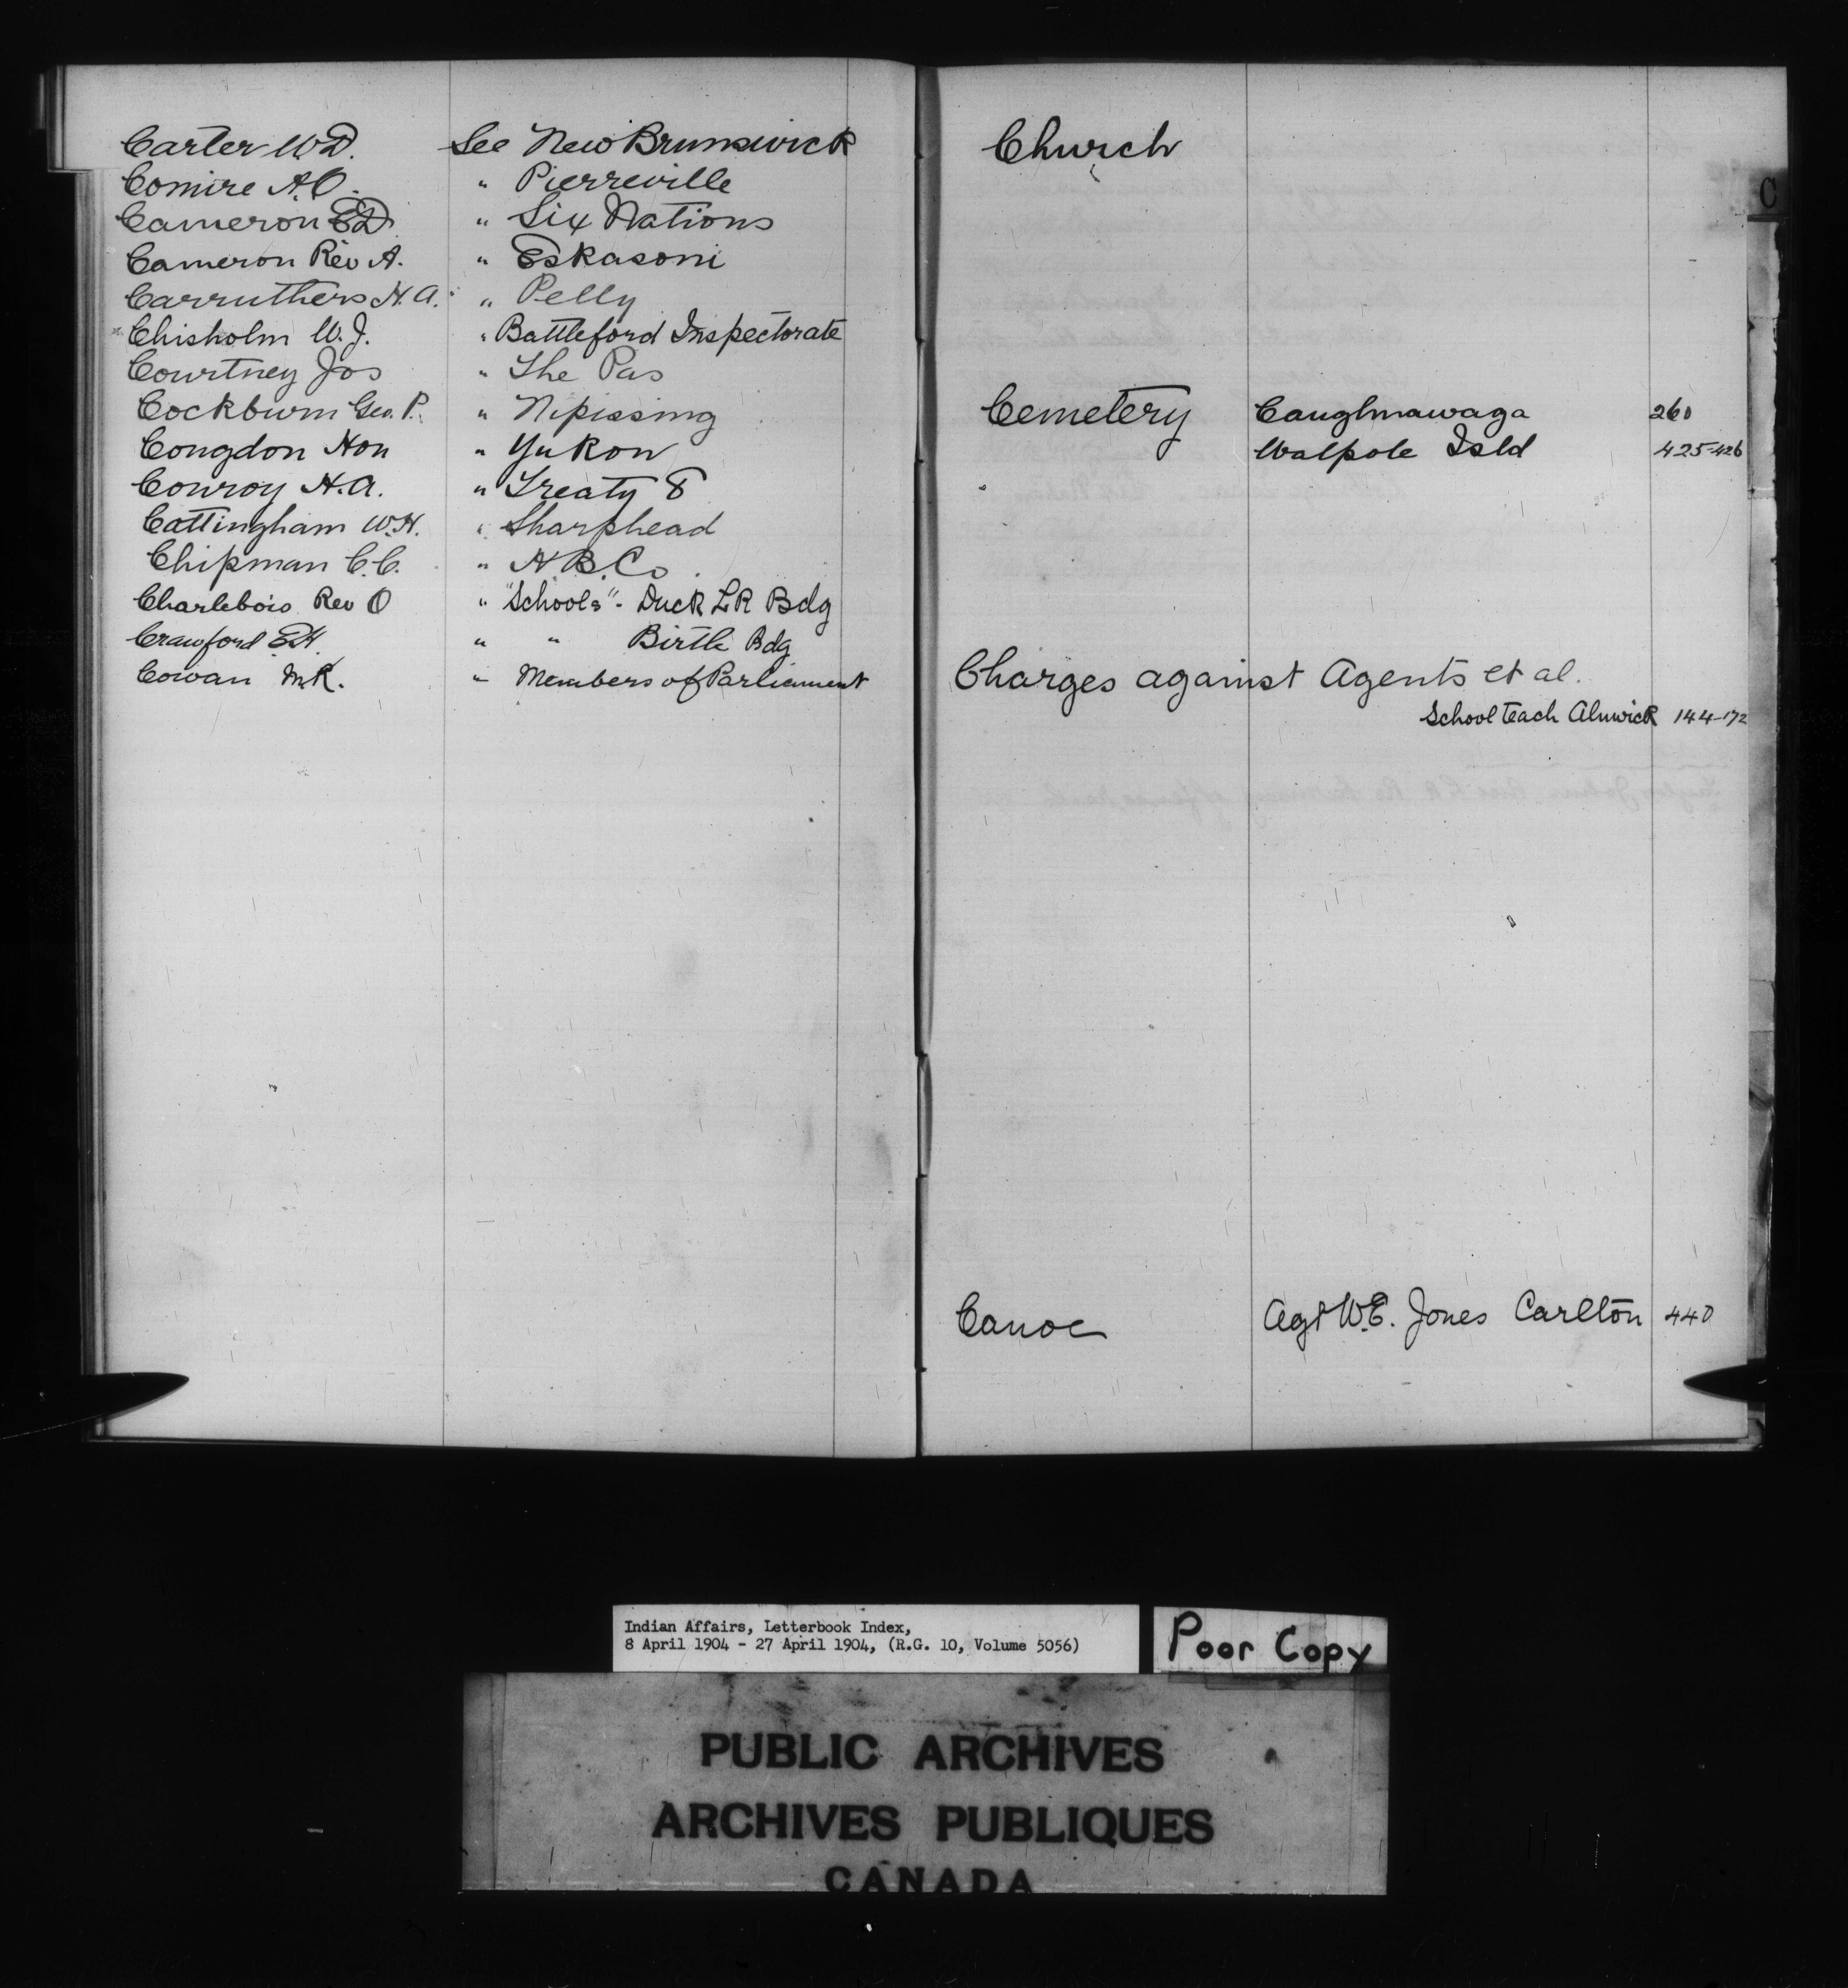 Carter W D. See New Brunswick
Comire A.O. " Pierreville
Cameron E D " Six Nations
Cameron Rev A. " Eskasoni
Carruthers H. A. " Pelly
Chisholm W. J. " Battleford Inspectorate
Courtney Jos " The Pas
Cockburn Geo. P. " Nipissing
Congdon Hon " Yukon
Conroy H. A. " Treaty 8
Cottingham W. H. " Sharphead
Chipman C. C. " H B. Co.
Charlebois Rev O " "Schools"- Duck LK Bdg
Crawford E H. " " Birtle Bdg
Cowan M K. " Members of Parliament
Church
C
Cemetery Caughnawaga 260
Walpole Isld 425-426
Charges against Agents et al.
School teach Alnwick 144-172
Canoe Agt W. E. Jones Carlton 440
Indian Affairs, Letterbook Index,
8 April 1904 - 27 April 1904, (R.G. 10, Volume 5056)
Poor Copy
PUBLIC ARCHIVES
ARCHIVES PUBLIQUES
CANADA